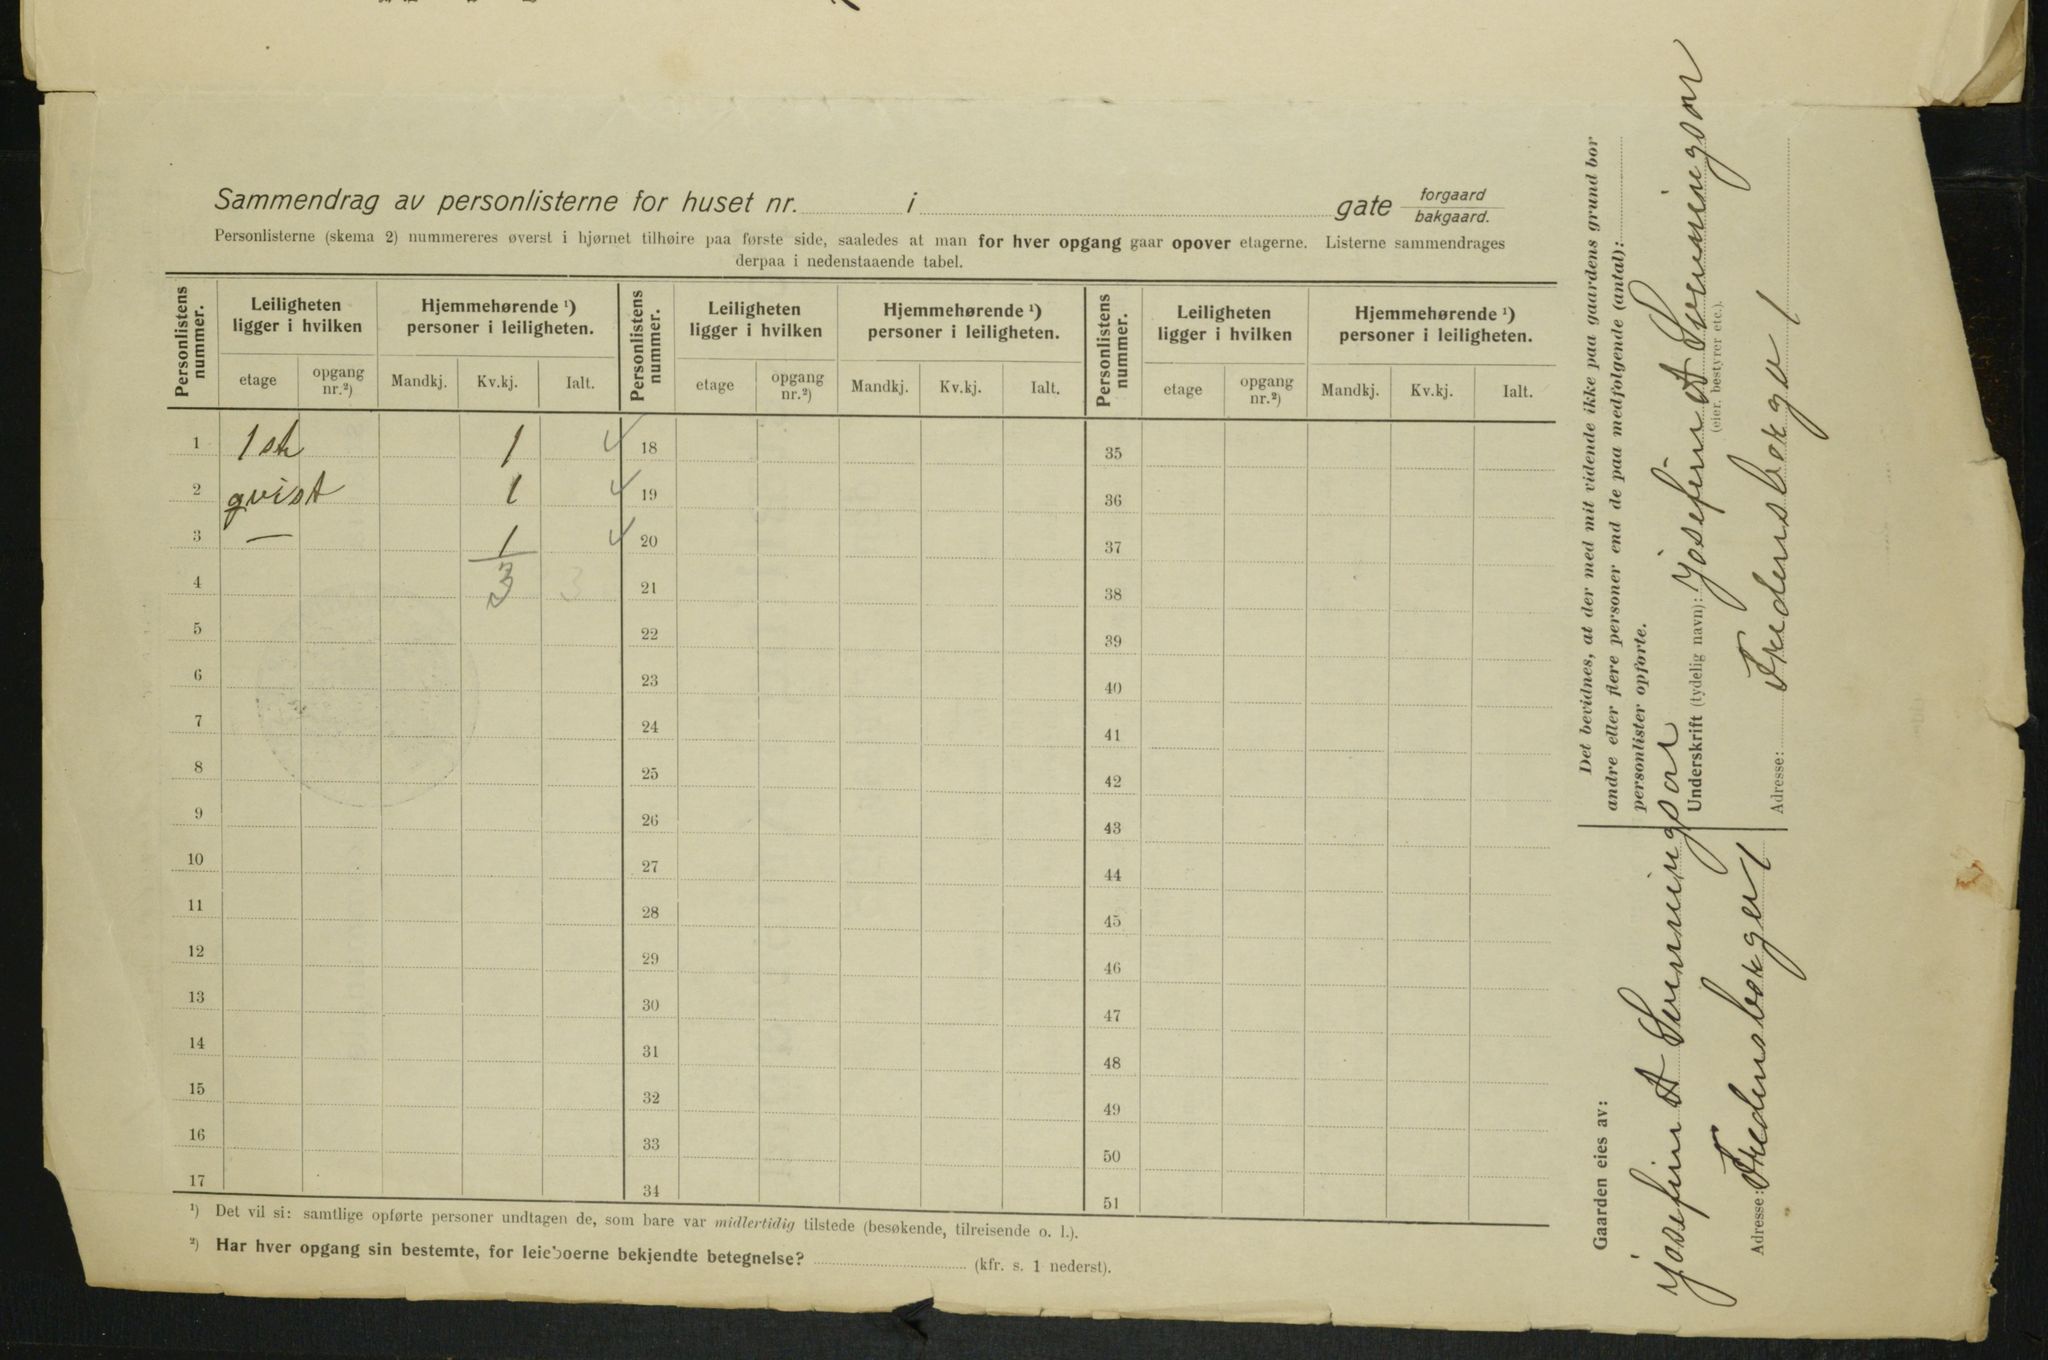 Sammendrag av personlisterne for huset nr. i gate forgaard bakgaard.
Personlisterne (skema 2) nummereres øverst i hjørnet tilhøire paa første side, saaledes at man for hver opgang gaar opover etagerne. Listerne sammendrages
derpaa i nedenstaaende tabel.
Personlistens nummer. Leiligheten ligger i hvilken Hjemmehørende ¹) personer i leiligheten. Personlistens nummer. Leiligheten ligger i hvilken Hjemmehørende ¹) personer i leiligheten. Personlistens nummer. Leiligheten ligger i hvilken Hjemmehørende ¹) personer i leiligheten.
etage opgang nr.²) Mandkj. Kv.kj. Ialt. etage opgang nr.²) Mandkj. Kv.kj. Ialt. etage opgang nr.²) Mandkj. Kv.kj. Ialt.
1 1 st 1 4 18 35
2 qvist 1 4 19 36
3 — 1 4 20 37
4 3 3 21 38
5 22 39
6 23 40
7 24 41
8 25 42
9 26 43
10 27 44
11 28 45
12 29 46
13 30 47
14 31 48
15 32 49
16 33 50
17 34 51
¹) Det vil si: samtlige opførte personer undtagen de, som bare var midlertidig tilstede (besøkende, tilreisende o. l.).
²) Har hver opgang sin bestemte, for leieboerne bekjendte betegnelse? (kfr. s. 1 nederst).
Gaarden eies av:
Josefin A
Adresse: Fredensbokget 1
Det bevidnes, at der med mit vidende ikke paa gaardens grund bor
andre eller flere personer end de paa medfølgende (antal):
personlister opførte.
Underskrift (tydelig navn): Josefin A
(eier, bestyrer etc.).
Adresse: Fredensbokgu 1